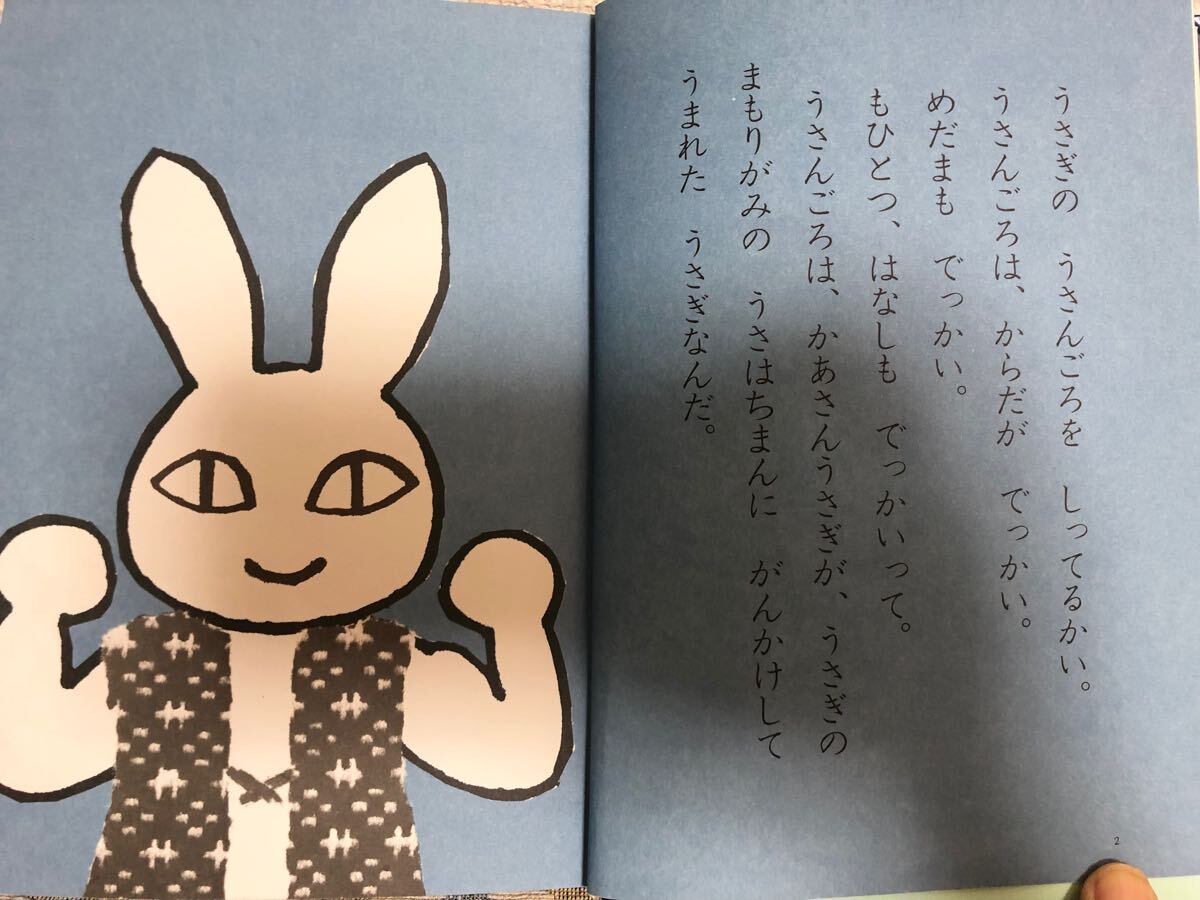 うさぎの　うさんごろを　しってるかい。
うさんごろは、からだが　でっかい。
めだまも　でっかい。
もひとつ、はなしも　でっかいって。
うさんごろは、かあさんうさぎが、うさぎの
まもりがみの　うさはちまんに　がんかけして
うまれた　うさぎなんだ。
2